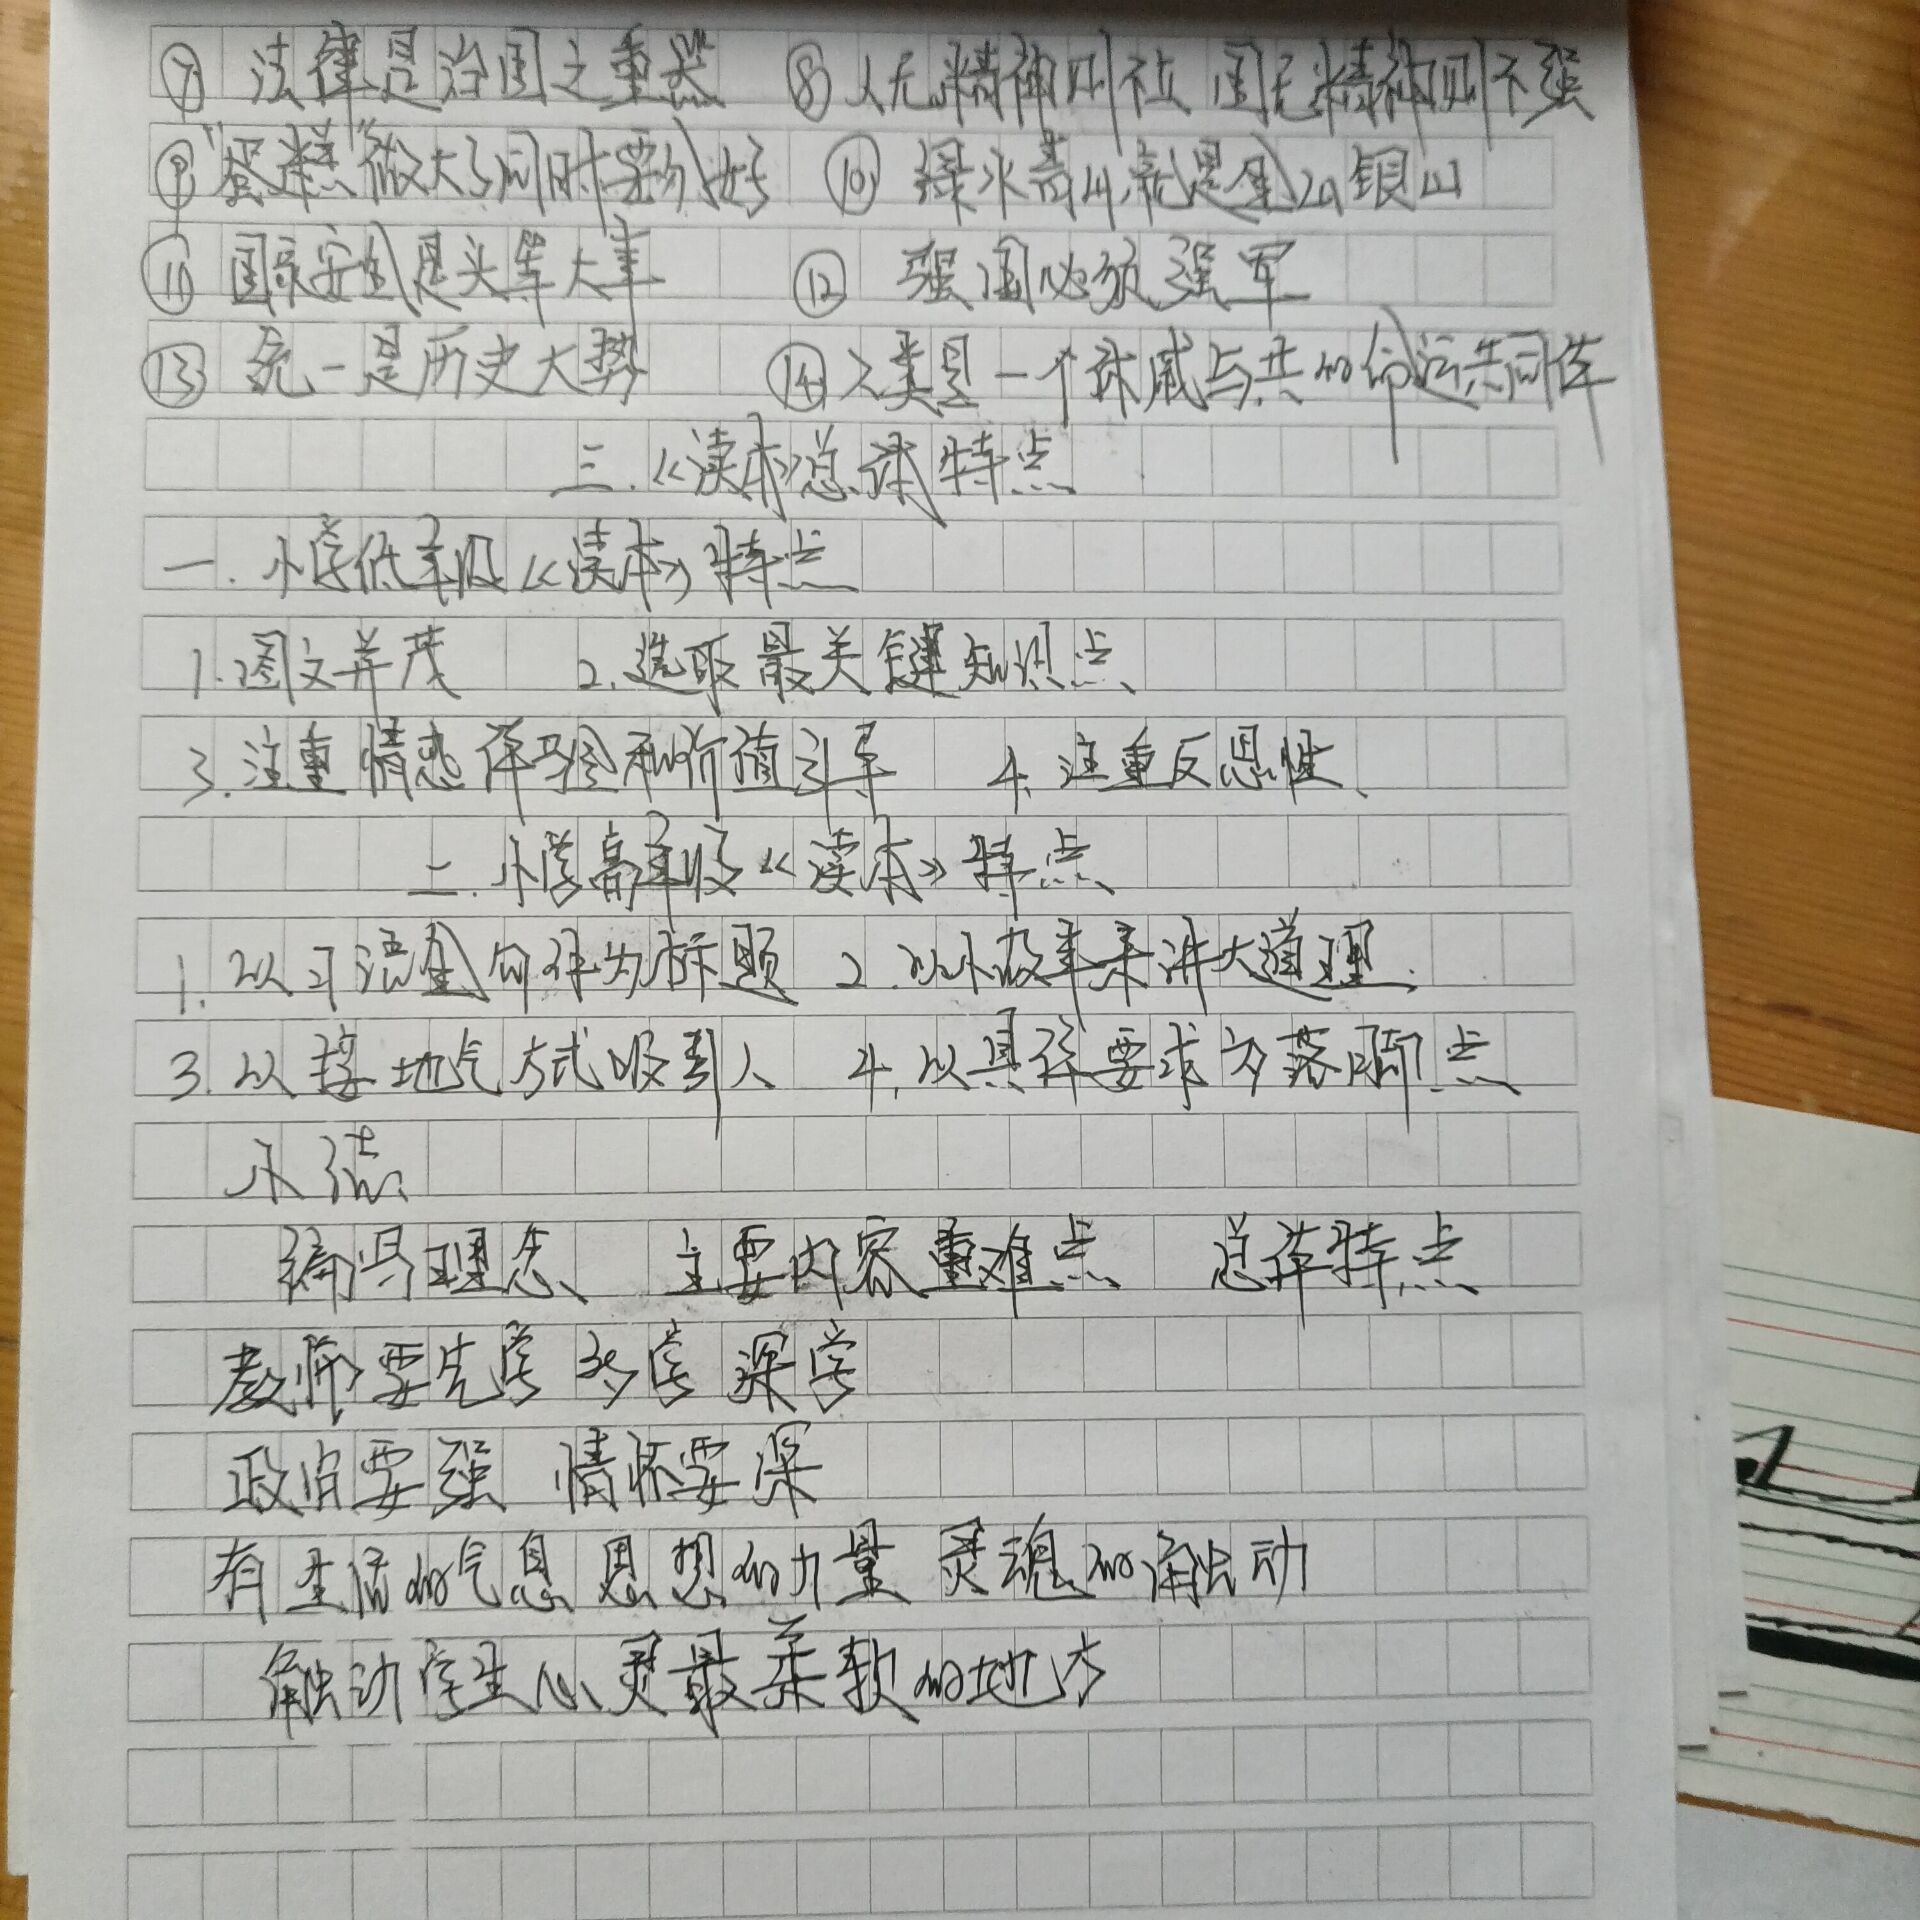 ⑦ 法律是治国之重器 ⑧人无精神则不立 国无精神则不强
⑨"蛋糕"做大了同时要分好 ⑩ 绿水青山就是金山银山
⑪ 国家安全是头等大事 ⑫ 强国必须强军
⑬ 统一是历史大势 ⑭人类是一个休戚与共的命运共同体
三.《读本》总体特点
一. 小学低年级《读本》特点
1.图文并茂 2.选取最关键知识点
3.注重情感体验和价值引导 4.注重反思性
二.小学高年级《读本》特点
1.以习语金句作为标题 2.以小故事来讲大道理.
3.以接地气方式吸引人 4.以具体要求为落脚点
小结
编写理念 主要内容重难点 总体特点
教师要先学 多学 深学
政治要强 情怀要深
有生活的气息 思想的力量 灵魂的触动
触动学生心灵最柔软的地方